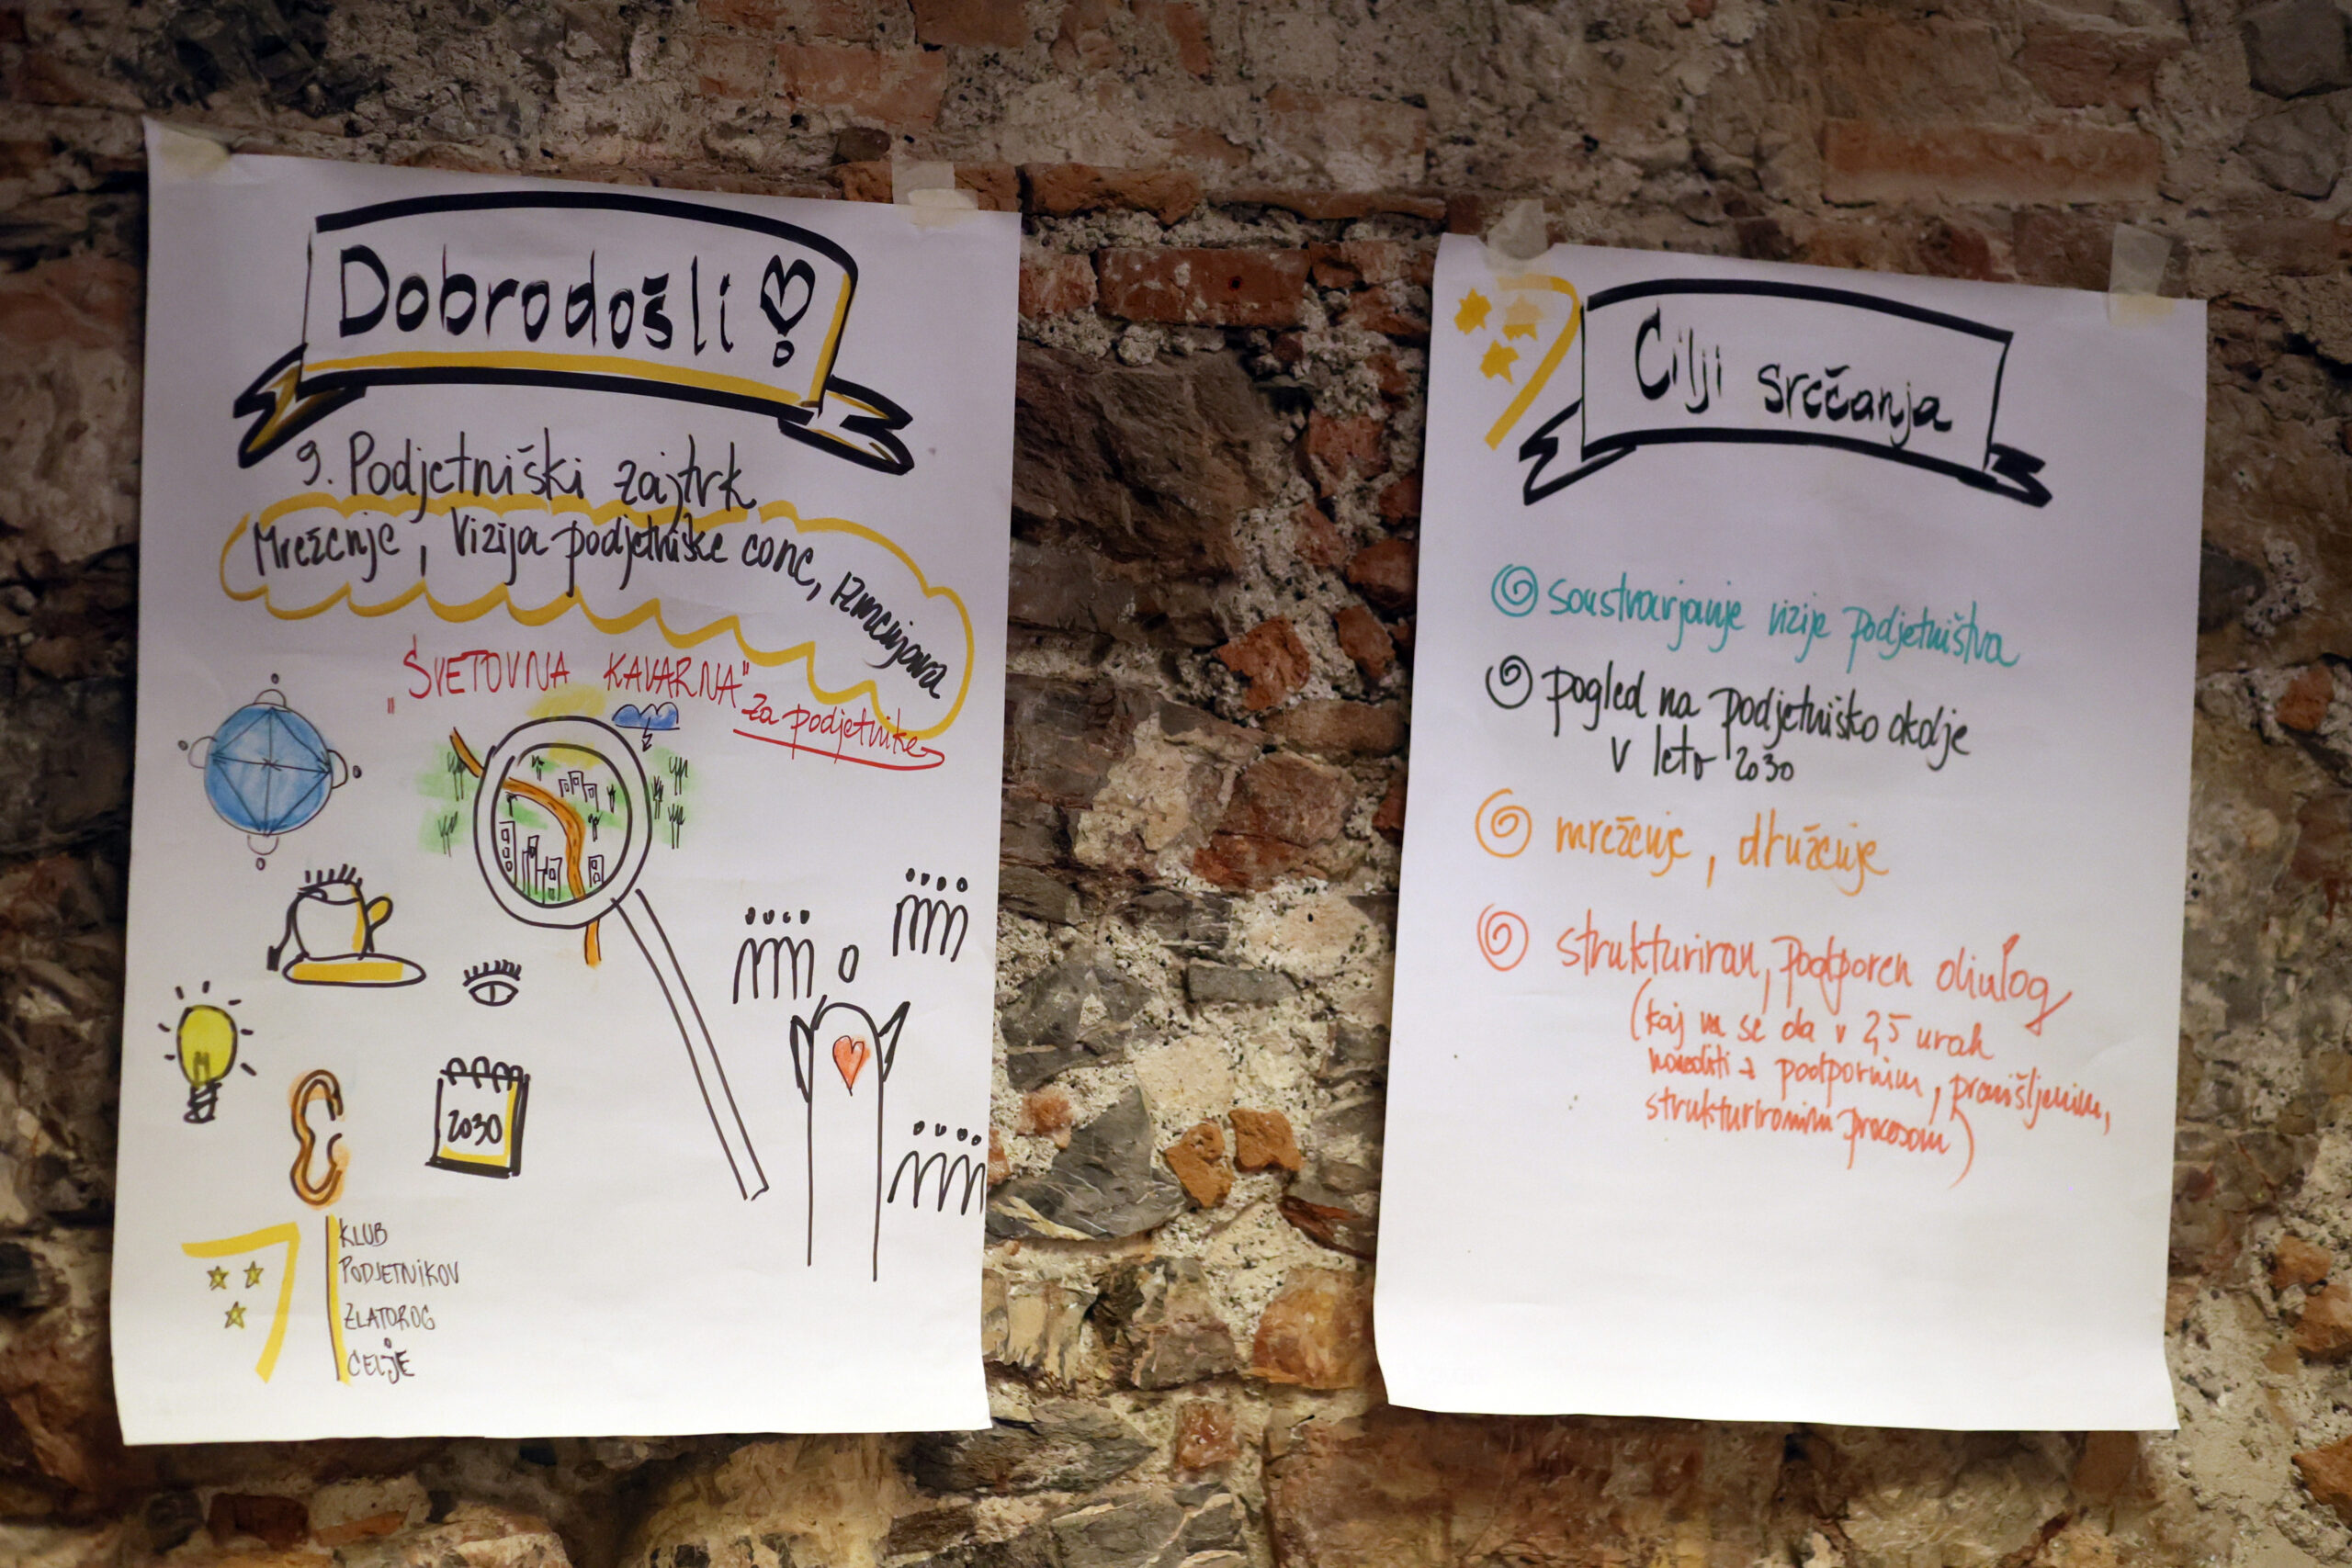 Dobrodošli!
9. Podjetniški zajtrk
Mreženje, Vizija podjetniške cone, izmenjava
"SVETOVNA KAVARNA"
za podjetnike
2030
KLUB
PODJETNIKOV
ZLATOROG
CELJE
Cilji srečanja
soustvarjanje vizije podjetništva
pogled na podjetniško okolje
v leto 2030
mreženje, druženje
strukturiran, podporen dialog
(kaj vse se da v 2,5 urah
narediti z podpornim, premišljenim,
strukturiranim procesom)